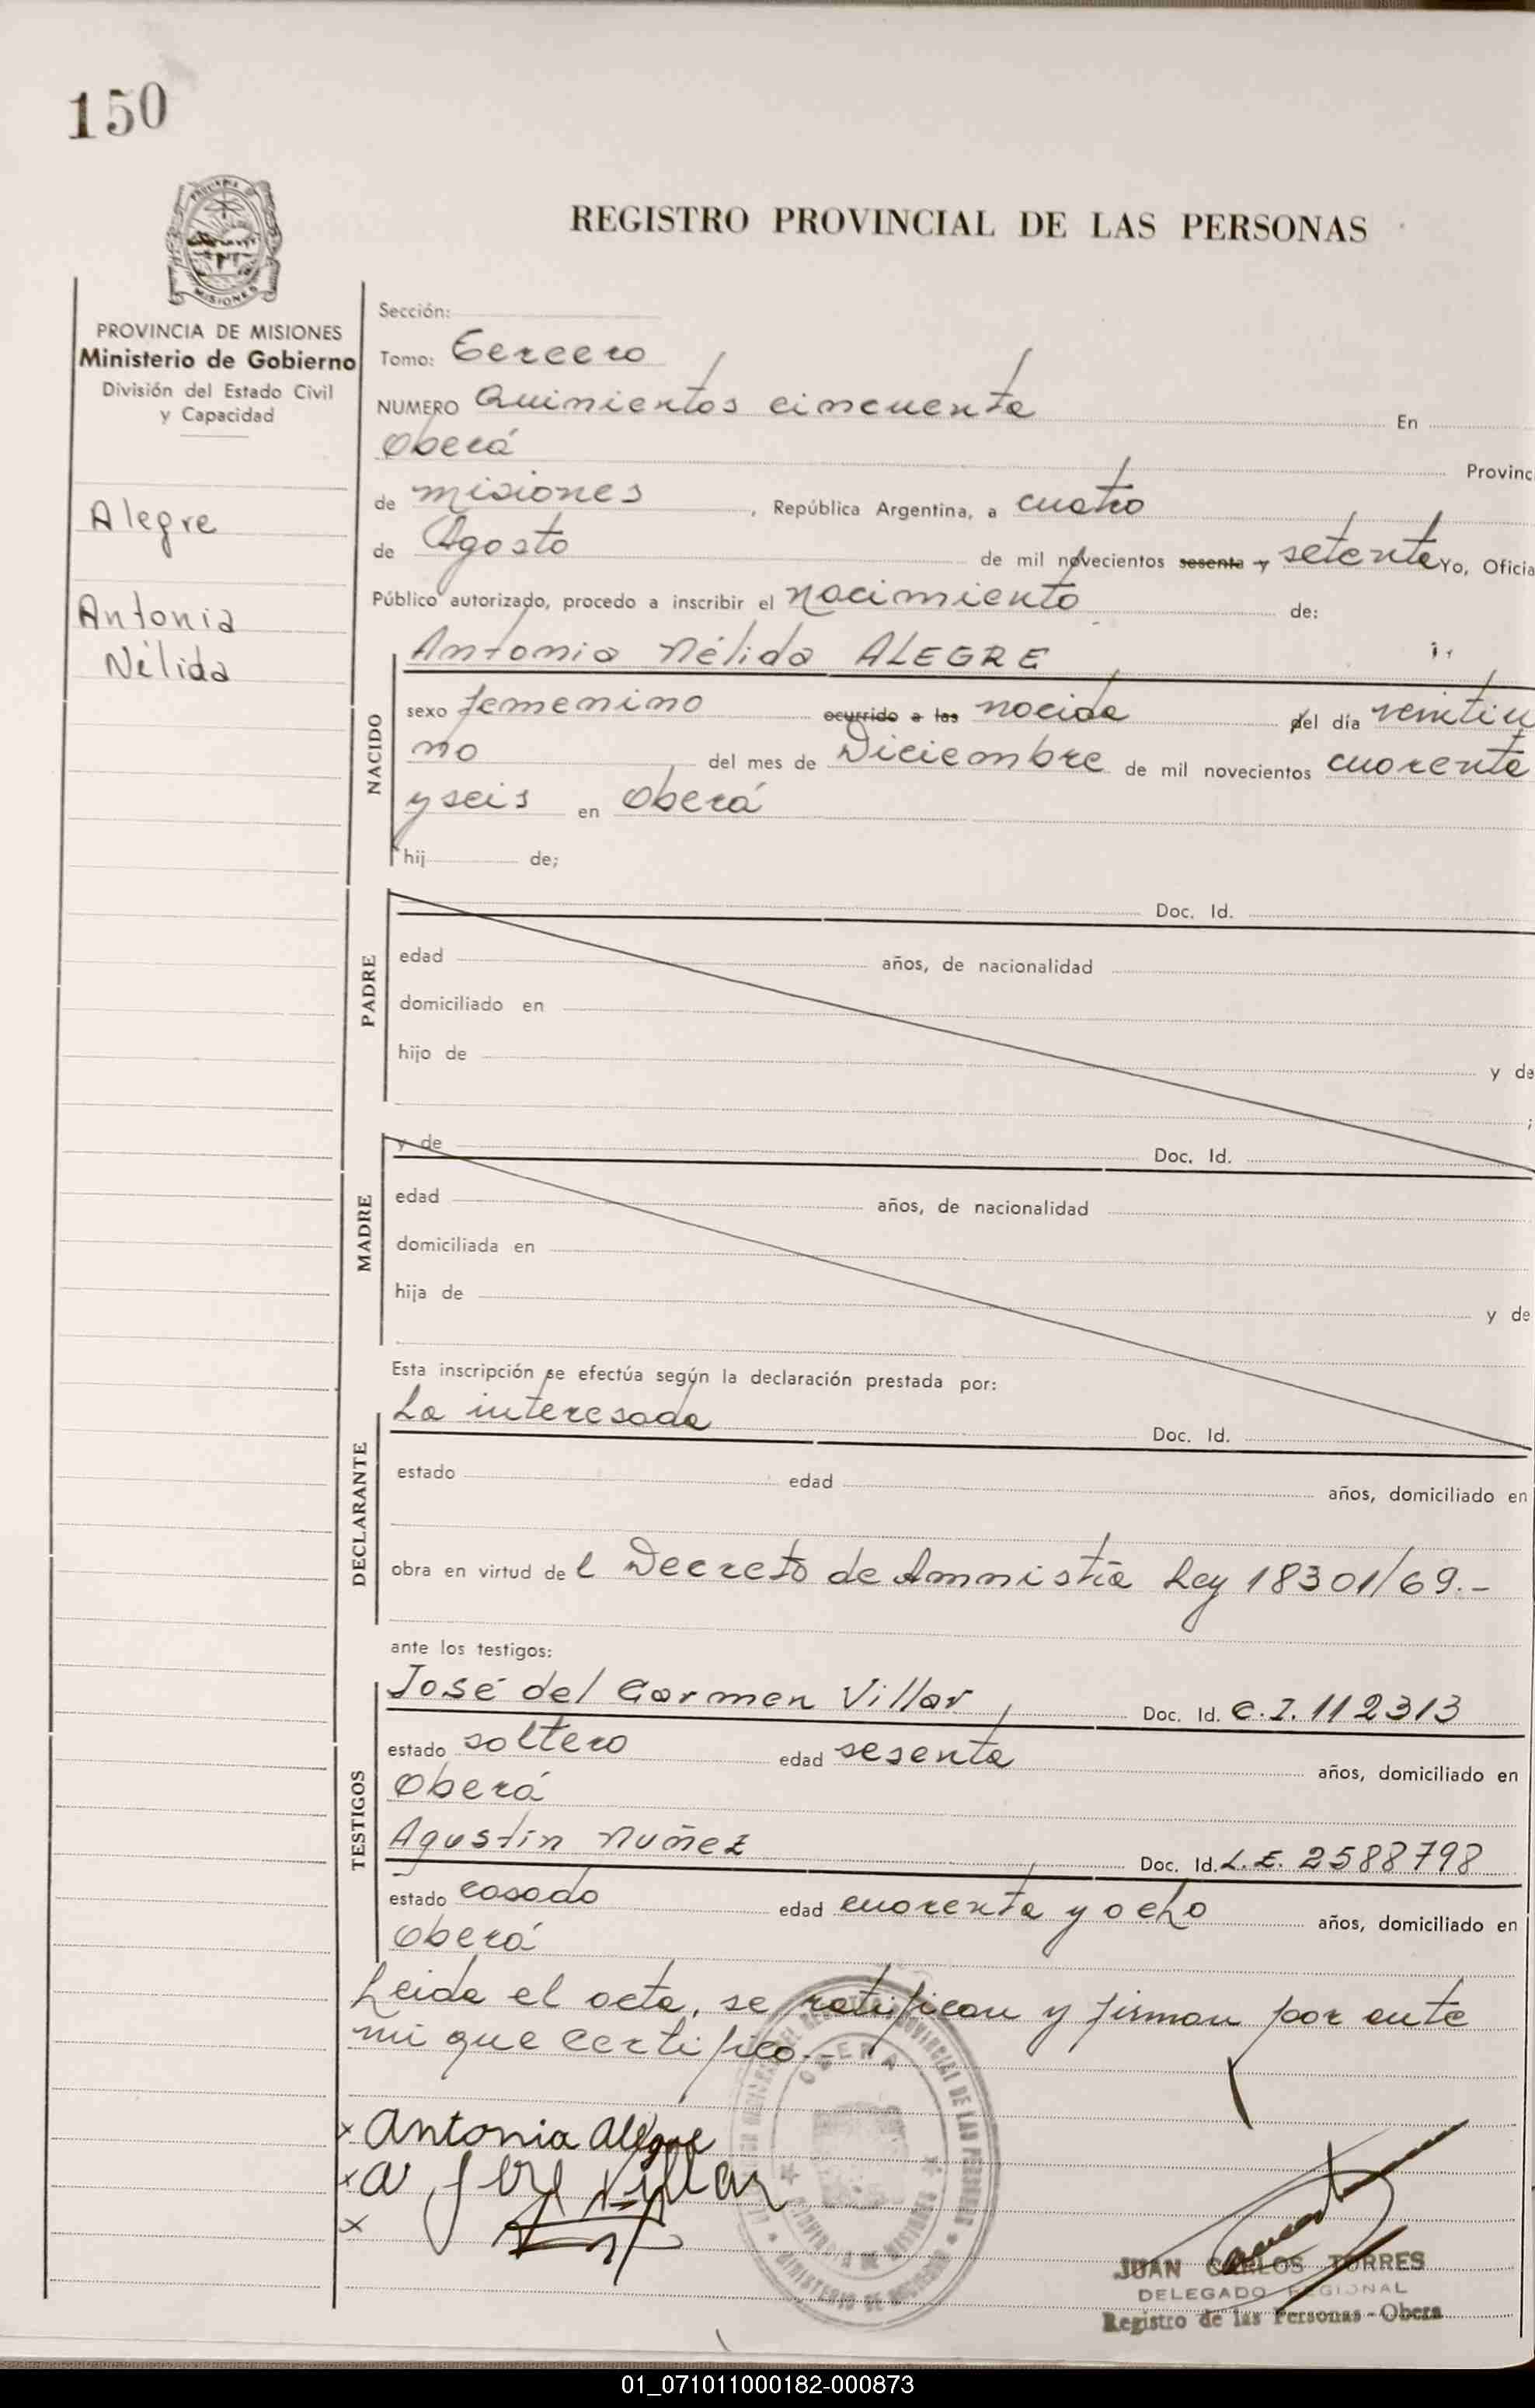 150
REGISTRO PROVINCIAL DE LAS PERSONAS
PROVINCIA DE MISIONES
Ministerio de Gobierno
División del Estado Civil
y Capacidad
Alegre
Antonia
Nélida
Sección:
Tomo: Tercero
NUMERO Quinientos cincuenta En
Oberá Provinc
de Misiones , República Argentina, a cuatro
de Agosto de mil novecientos sesenta y setenta Yo, Oficia
Público autorizado, procedo a inscribir el nacimiento de:
Antonia Nélida ALEGRE
NACIDO
sexo femenino ocurrido a las nacida del día veintiu
no del mes de Diciembre de mil novecientos cuarenta
y seis en Oberá
hij de;
PADRE
Doc. Id.
edad años, de nacionalidad
domiciliado en
hijo de y de
;
MADRE
y de Doc. Id.
edad años, de nacionalidad
domiciliada en
hija de y de
Esta inscripción se efectúa según la declaración prestada por:
DECLARANTE
La interesada Doc. Id.
estado edad años, domiciliado en
obra en virtud de l Decreto de Amnistía Ley 18301/69.-
ante los testigos:
TESTIGOS
José del Carmen Villar Doc. Id. C.I. 112313
estado soltero edad sesenta años, domiciliado en
Oberá
Agustín Nuñez Doc. Id. L.E. 2588798
estado casado edad cuarenta y ocho años, domiciliado en
Oberá
Leida el acta, se ratifican y firman por ante
mi que certifico.-
x Antonia Alegre
x Villar
x
OBERA
PROVINCIA DE MISIONES
MINISTERIO DE GOBIERNO
JUAN CARLOS TORRES
DELEGADO REGIONAL
Registro de las Personas - Obera
01_071011000182-000873